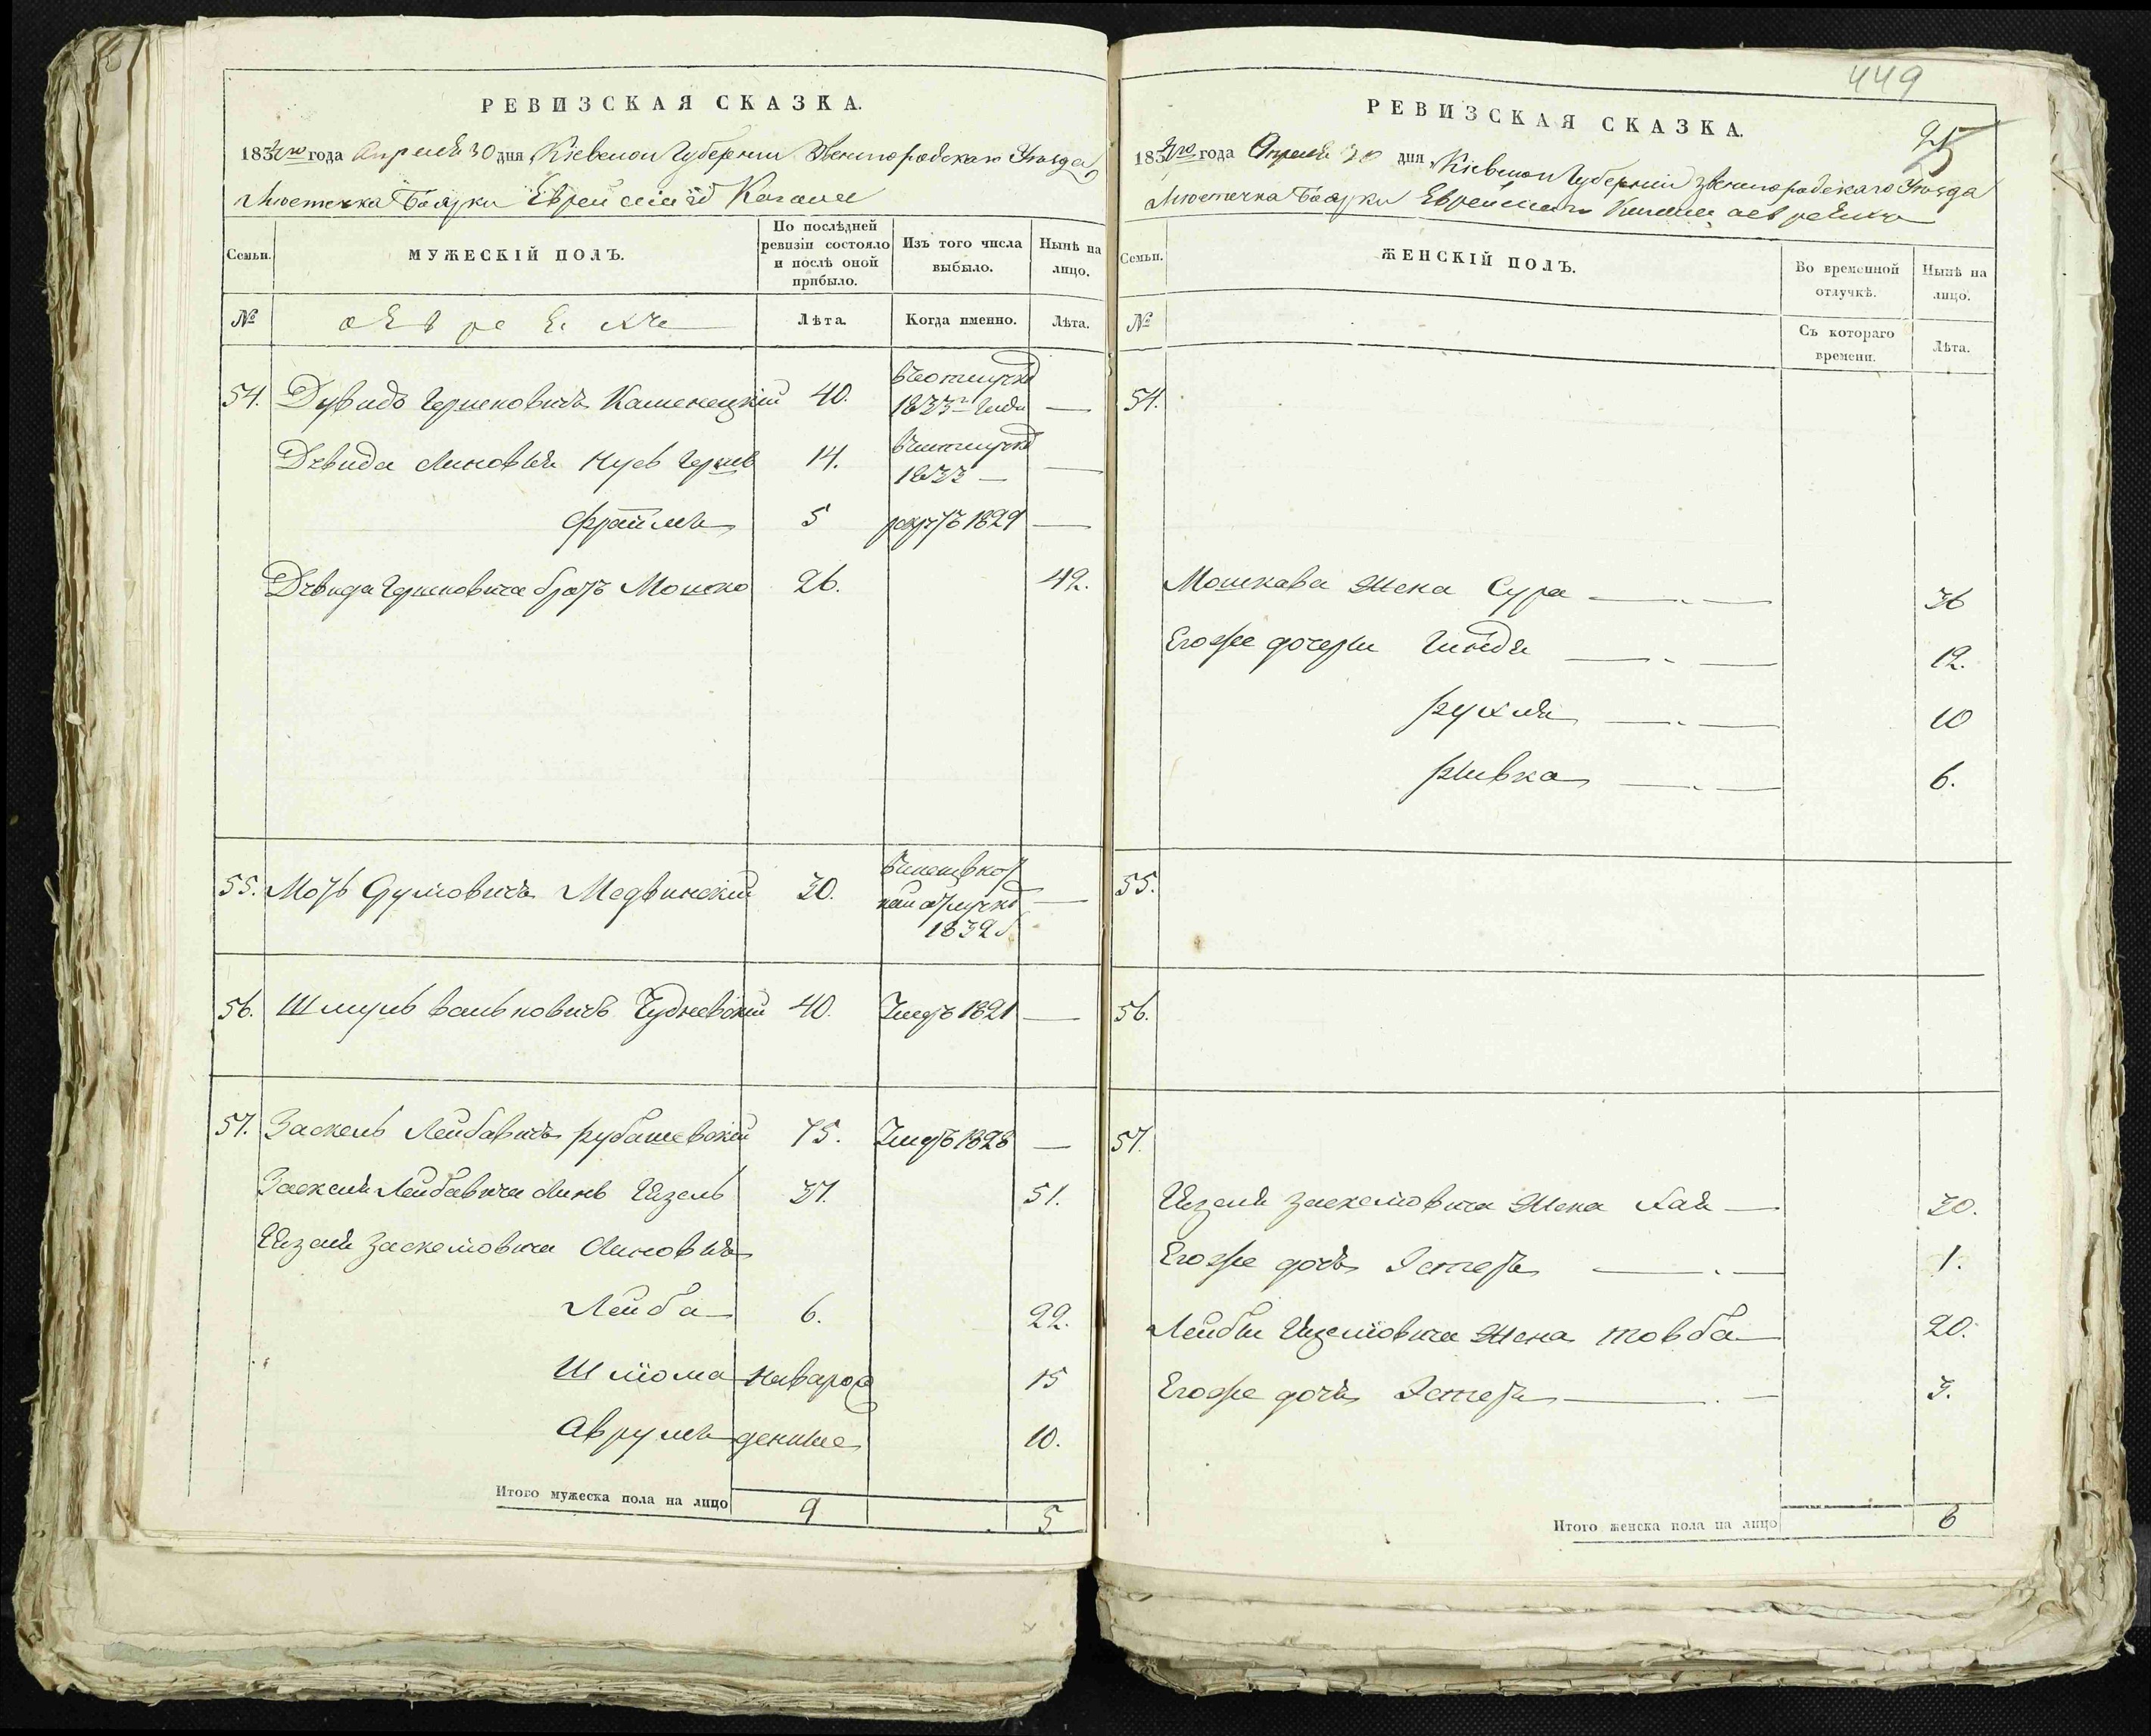 РЕВИЗСКАЯ СКАЗКА.
1834го года Апреля 30 дня Кіевской Губерніи Звенигородскаго Уезда
Местечка Боярки Еврейскаго Кагала
Семьи.
МУЖЕСКІЙ ПОЛЪ.
По послѣдней ревизіи состояло и послѣ оной прибыло.
Изъ того числа выбыло.
Нынѣ на лицо.
№
о Евреяхъ
Лѣта.
Когда именно.
Лѣта.
54. Дувидъ Гершковичъ Каменецкій 40. въ отлучкѣ 1833 года —
Дувида сыновья Нусъ Герш 14. въ отлучкѣ 1833 —
Фроимъ 5 рекрутъ 1829 —
Дувида Гершковича братъ Мошко 26. 42.
55. Мотъ Сумовичъ Медвинскій 30. отлучкѣ 1832
56. Шмуль Вольковичъ Чудневскій 40. Умеръ 1821 —
57. Заскель Лейбовичъ Рубашевскій 75. Умеръ 1828 —
Заскеля Лейбовича сынъ Ицель 37. 51.
Ицеля Заскелiовича сыновья
Лейба 6. 22.
Шлiома новорож 15
Аврумъ денные 10.
Итого мужеска пола на лицо 9 5
449
РЕВИЗСКАЯ СКАЗКА.
25
1834го года Апреля 30 дня Кіевской Губерніи Звенигородскаго Уезда
Местечка Боярки Еврейскаго Кагала о евреяхъ
Семьи.
ЖЕНСКІЙ ПОЛЪ.
Во временной отлучкѣ.
Нынѣ на лицо.
№
Съ котораго времени.
Лѣта.
54.
Мошкова жена Сура 36
Егоже дочери Гиндя 12.
Рухля 10
Ривка 6.
55.
56.
57.
Ицеля Заскелiовича жена Хая 30.
Егоже дочь Эстеръ 1.
Лейбы Ицелiовича жена Товба 20.
Егоже дочь Эстеръ 3.
Итого женска пола на лицо 8